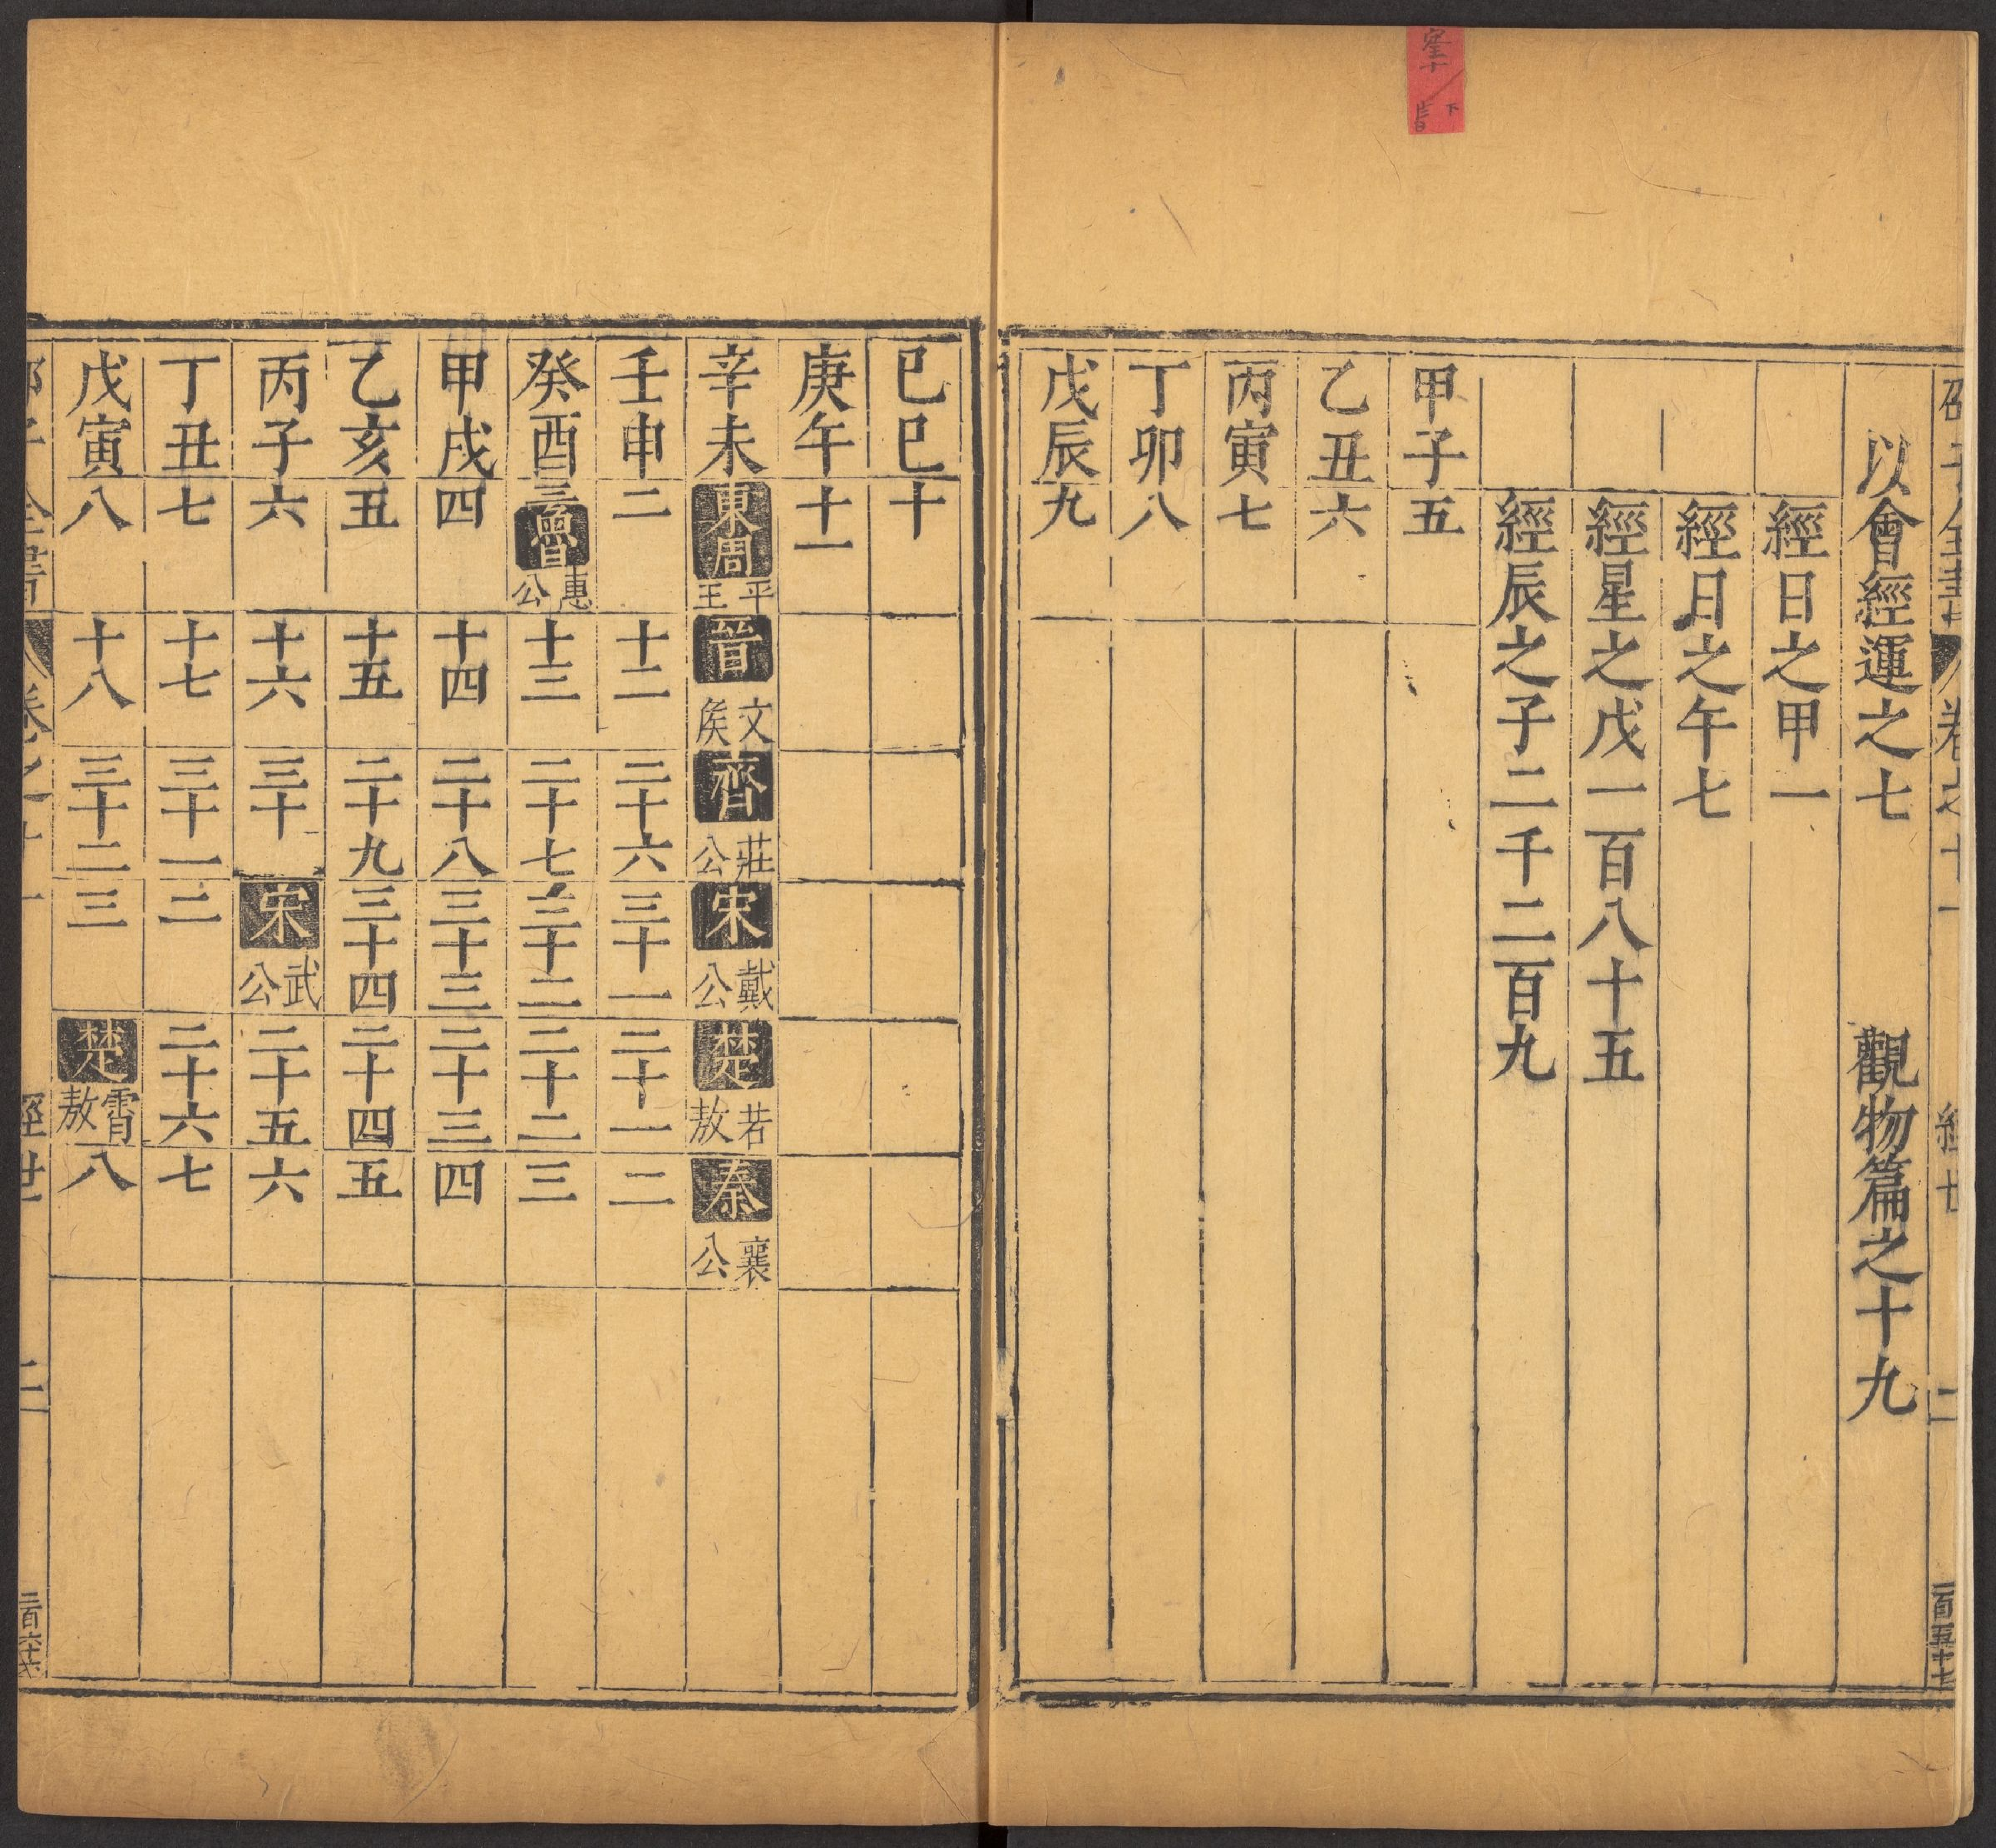 以會經運之七 觀物篇之十九
經日之甲一
經日之午七
經星之戊一百八十五
經辰之子二千二百九
甲子五
乙丑六
丙寅七
丁卯八
戊辰九
巳巳十
庚午十一
辛未東周平王 晉文侯 齊莊公 宋戴公 楚若敖 秦襄公
壬申二 十二 二十六 三十一 二十一 二
癸酉三魯惠公 十三 二十七 三十二 二十二 三
甲戌四 十四 二十八 三十三 二十三 四
乙亥五 十五 二十九 三十四 二十四 五
丙子六 十六 三十 宋武公 二十五 六
丁丑七 十七 三十一 二 二十六 七
戊寅八 十八 三十二 三 楚霄敖 八